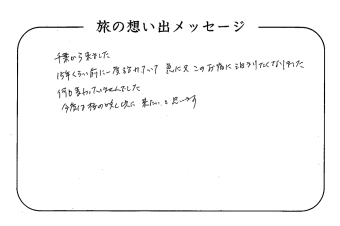 旅の想い出メッセージ
千葉から来ました
15年くらい前に一度泊まっていて 急に又 このお宿に泊まりたくなりました
何も変わっていませんでした
今度は桜の咲く頃に 来たい と思います